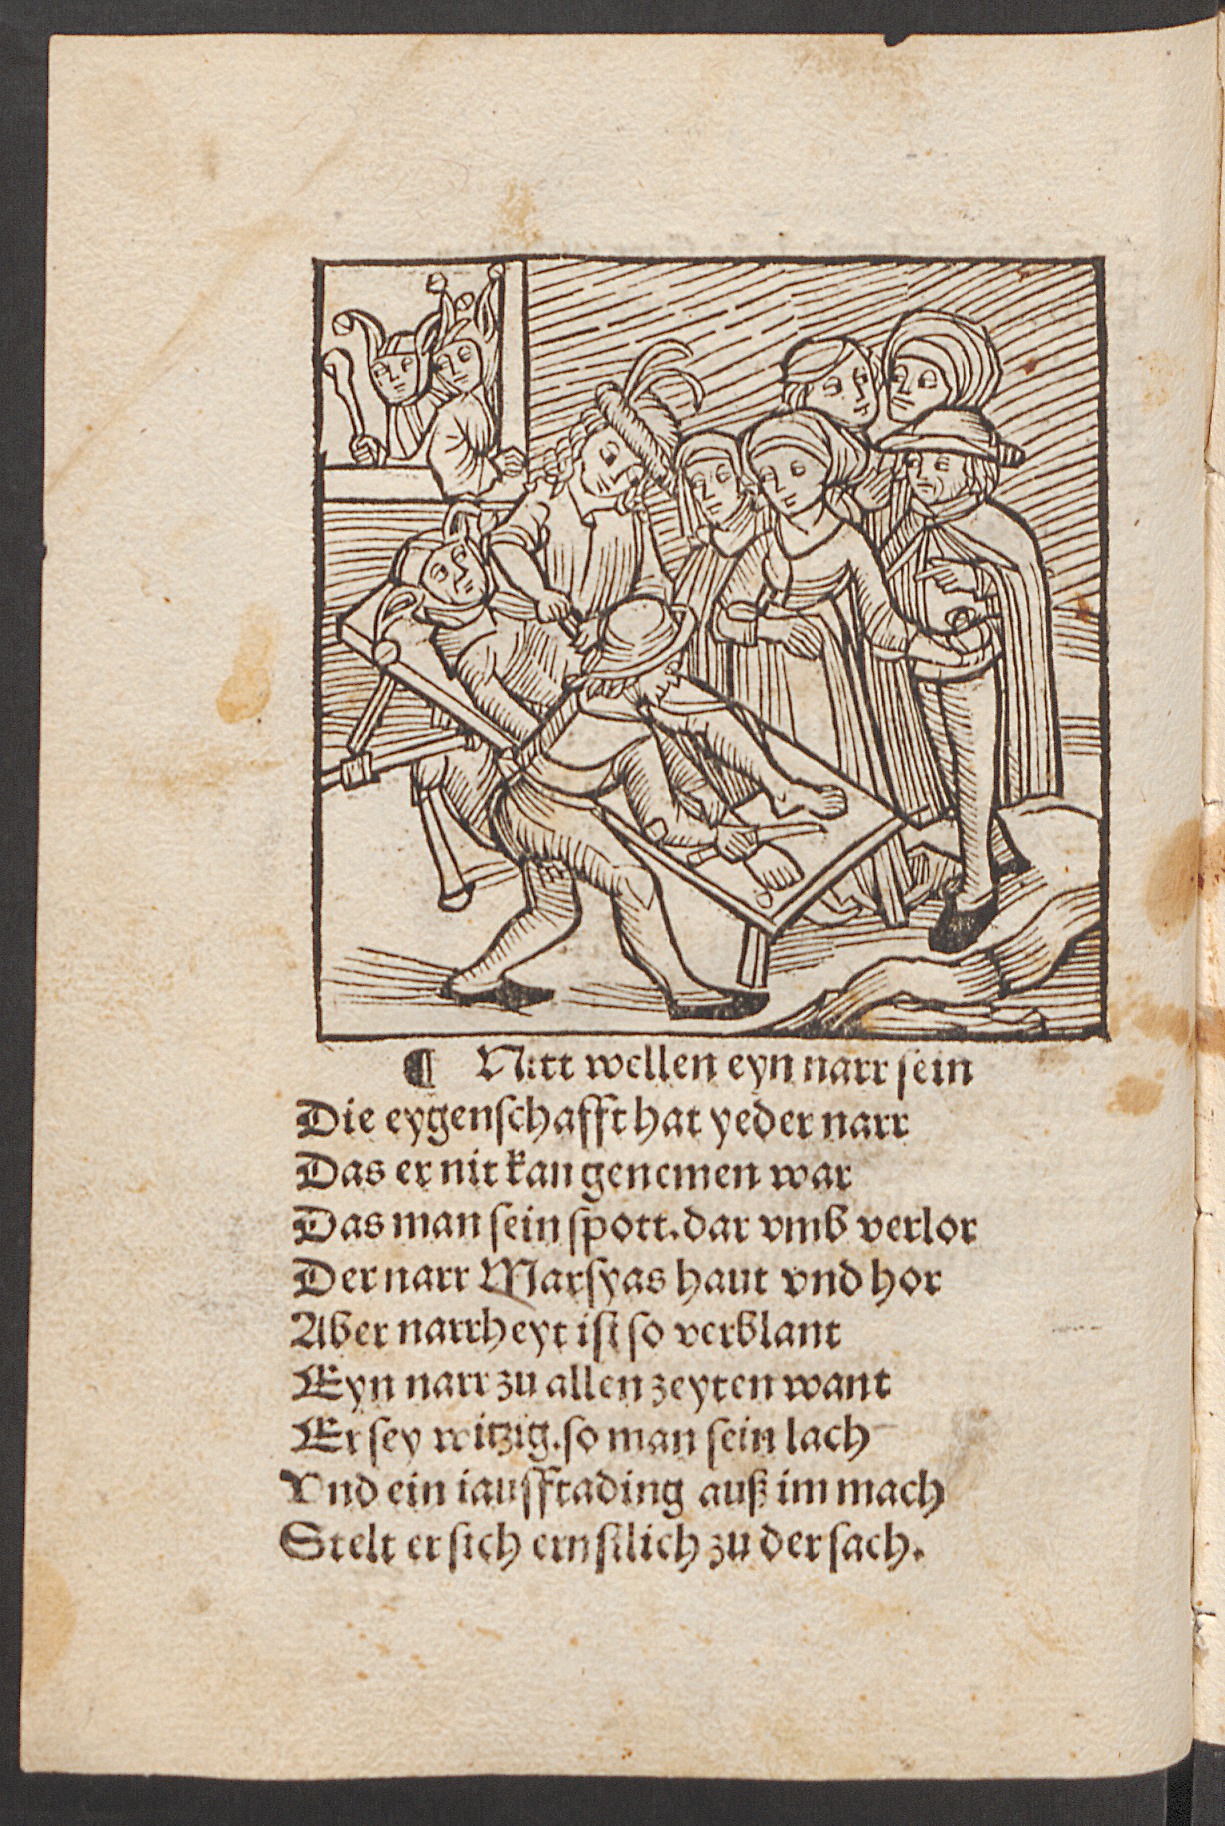 ¶ Nitt wellen eyn narr sein
Die eygenschafft hat yeder narr
Das er nit kan genemen war
Das man sein spott. dar vmb verlor
Der narr Marsyas haut vnd hor
Aber narrheyt ist so verblant
Eyn narr zu allen zeyten want
Er sey witzig. so man sein lach
Vnd ein iaufftading auß im mach
Stelt er sich ernstlich zu der sach.